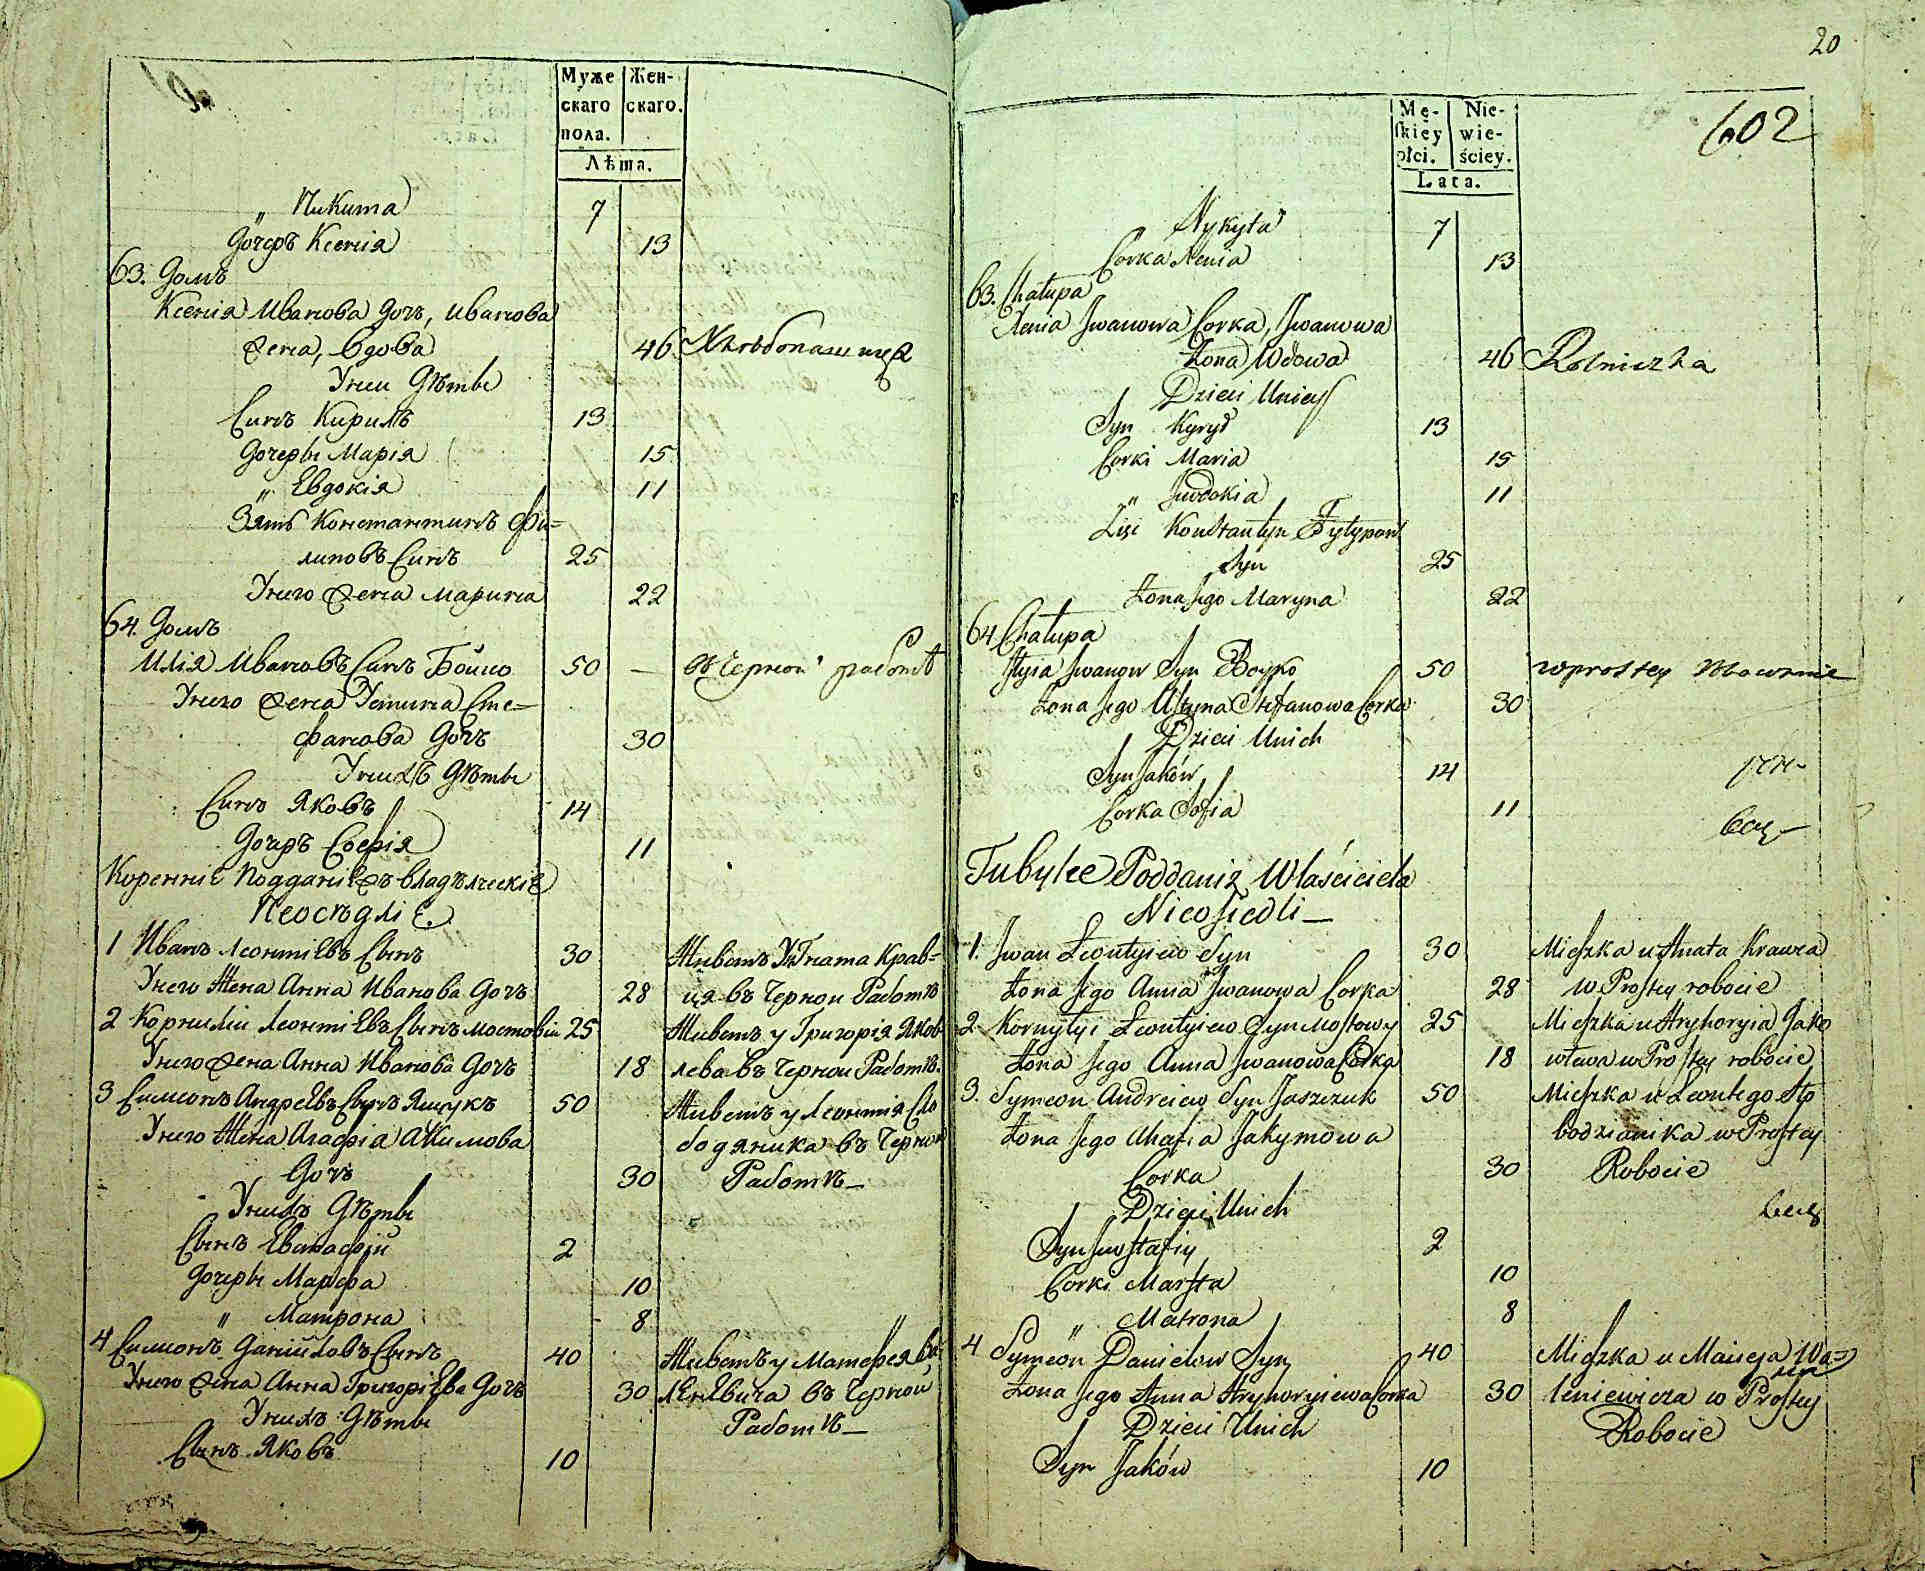 Муже
скаго
пола.
Жен-
скаго.
Лѣта.
„ Никита 7
Дочерь Ксенія 13
63. Домъ
Ксенія Иванова Дочь, Иванова
жена, вдова 46 Хлѣбопашица
У неи Дѣти
Сынъ Кирилъ 13
Дочеры Марія 15
„ Евдокія 11
Зять Константинъ Фи=
липовъ Сынъ 25
У него жена Марина 22
64. Домъ
Илія Ивановъ Сынъ Бойко 50 — въ Черной работѣ
У него жена Устина Сте=
фанова Дочь 30
У нихъ Дѣти
Сынъ Яковъ 14
Дочерь Софія 11
Коренніе Подданіе владѣлческіе
Неосѣдліе.
1 Иванъ Леонтіевъ Сынъ 30 Живетъ У Гната Крав=
У него Жена Анна Иванова Дочь 28 ця въ Черной Работѣ
2 Корнилій Леонтіевъ Сынъ мостовій 25 Живетъ у Григорія Яков
У него жена Анна Иванова Дочь 18 лева въ Черной Работѣ.
3 Симеонъ Андреевъ Сынъ Ящукъ 50 Живетъ у Леонтія Сло
У него Жена Агафія Акимова бодяника въ Черной
Дочь 30 Работѣ—
У нихъ Дѣти
Сынъ Евстафій 2
Дочеры Марфа 10
„ Матрона 8
4 Симеонъ Даніиловъ Сынъ 40 Живетъ у Матфея Ва
У него жена Анна Григоріева Дочь 30 леневича въ Черной
У нихъ Дѣти Работѣ—
Сынъ Яковъ 10
20
602
Mę-
skiey
płci.
Nie-
wie-
ściey.
Lata.
Nykyta 7
Corka Xenia 13
63. Chałupa
Xenia Jwanowa Corka, Jwanowa
Żona Wdowa 46 Rolniczka
Dzieci Uniey
Syn Kyrył 13
Corki Maria 15
„ Jwdokia 11
Zięć Konstantyn Fyłypow
Syn 25
Żona Jego Maryna 22
64 Chałupa
Jłyia Jwanow Syn Boyko 50 w prostey
Żona Jego Ustyna Stefanowa Corka 30
Dzieci Unich
Syn Jaków 14
Corka Sofia 11
Tubylce Poddani z Właściciela
Nieosiedli—
1. Jwan Leontyiew Syn 30 Mieszka u Hnata Krawca
Żona Jego Anna Jwanowa Corka 28 w Prostey robocie
2 Kornyłyi Leontyiew Syn Mostowy 25 Mieszka u Hryhoryia Jako
Żona Jego Anna Jwanowa Corka 18 wlewa w Prostey robocie
3. Symeon Andreiew Syn Jaszczuk 50 Mieszka u Leontego Sło
Żona Jego Ahafia Jakymowa bodzianika w Prostey
Corka 30 Robocie
Dzieci Unich
Syn Jwstafiy 2
Corki Marfta 10
„ Matrona 8
4 Symeon Daniełow Syn 40 Mieszka u Mateja Wa=
Żona Jego Anna Hryhoryiewa Corka 30 leniewicza w Prostey
Dzieci Unich Robocie
Syn Jaków 10